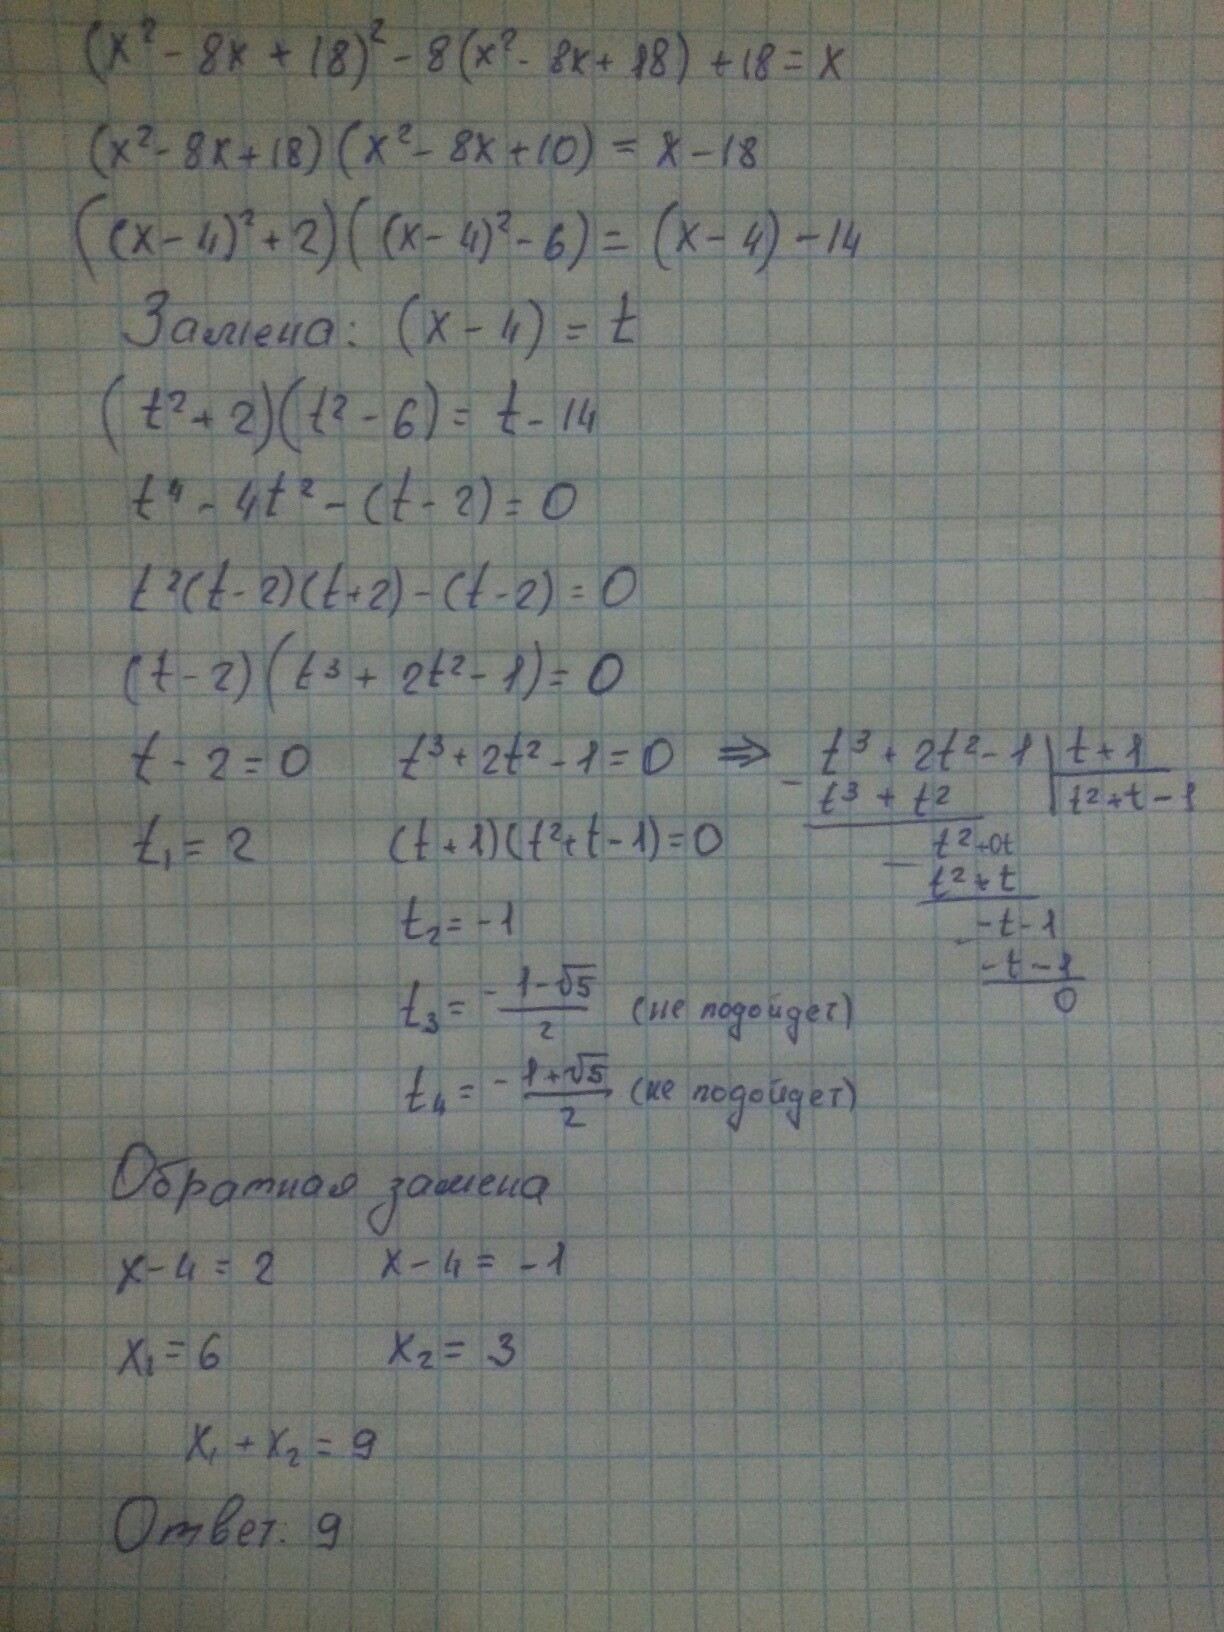 (x² - 8x + 18)² - 8(x² - 8x + 18) + 18 = x
(x² - 8x + 18)(x² - 8x + 10) = x - 18
((x - 4)² + 2)((x - 4)² - 6) = (x - 4) - 14
Замена: (x - 4) = t
(t² + 2)(t² - 6) = t - 14
t⁴ - 4t² - (t - 2) = 0
t²(t - 2)(t + 2) - (t - 2) = 0
(t - 2)(t³ + 2t² - 1) = 0
t - 2 = 0 t³ + 2t² - 1 = 0 ⇒ t³ + 2t² - 1 | t + 1
- t³ + t² | t² + t - 1
t₁ = 2 (t + 1)(t² + t - 1) = 0 - t² + 0t
t² + t
t₂ = -1 - -t - 1
-t - 1
0
t₃ = - (1 - √5)/2 (не подойдет)
t₄ = - (1 + √5)/2 (не подойдет)
Обратная замена
x - 4 = 2 x - 4 = -1
x₁ = 6 x₂ = 3
x₁ + x₂ = 9
Ответ: 9